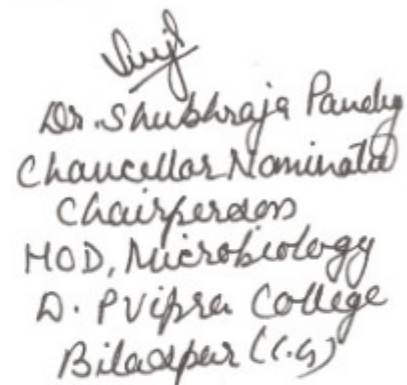 Dr. Shubhraja Pandey
Chancellor Nominated
Chairperson
HOD, Microbiology
D. P Vipra College
Bilaspur (C.G)